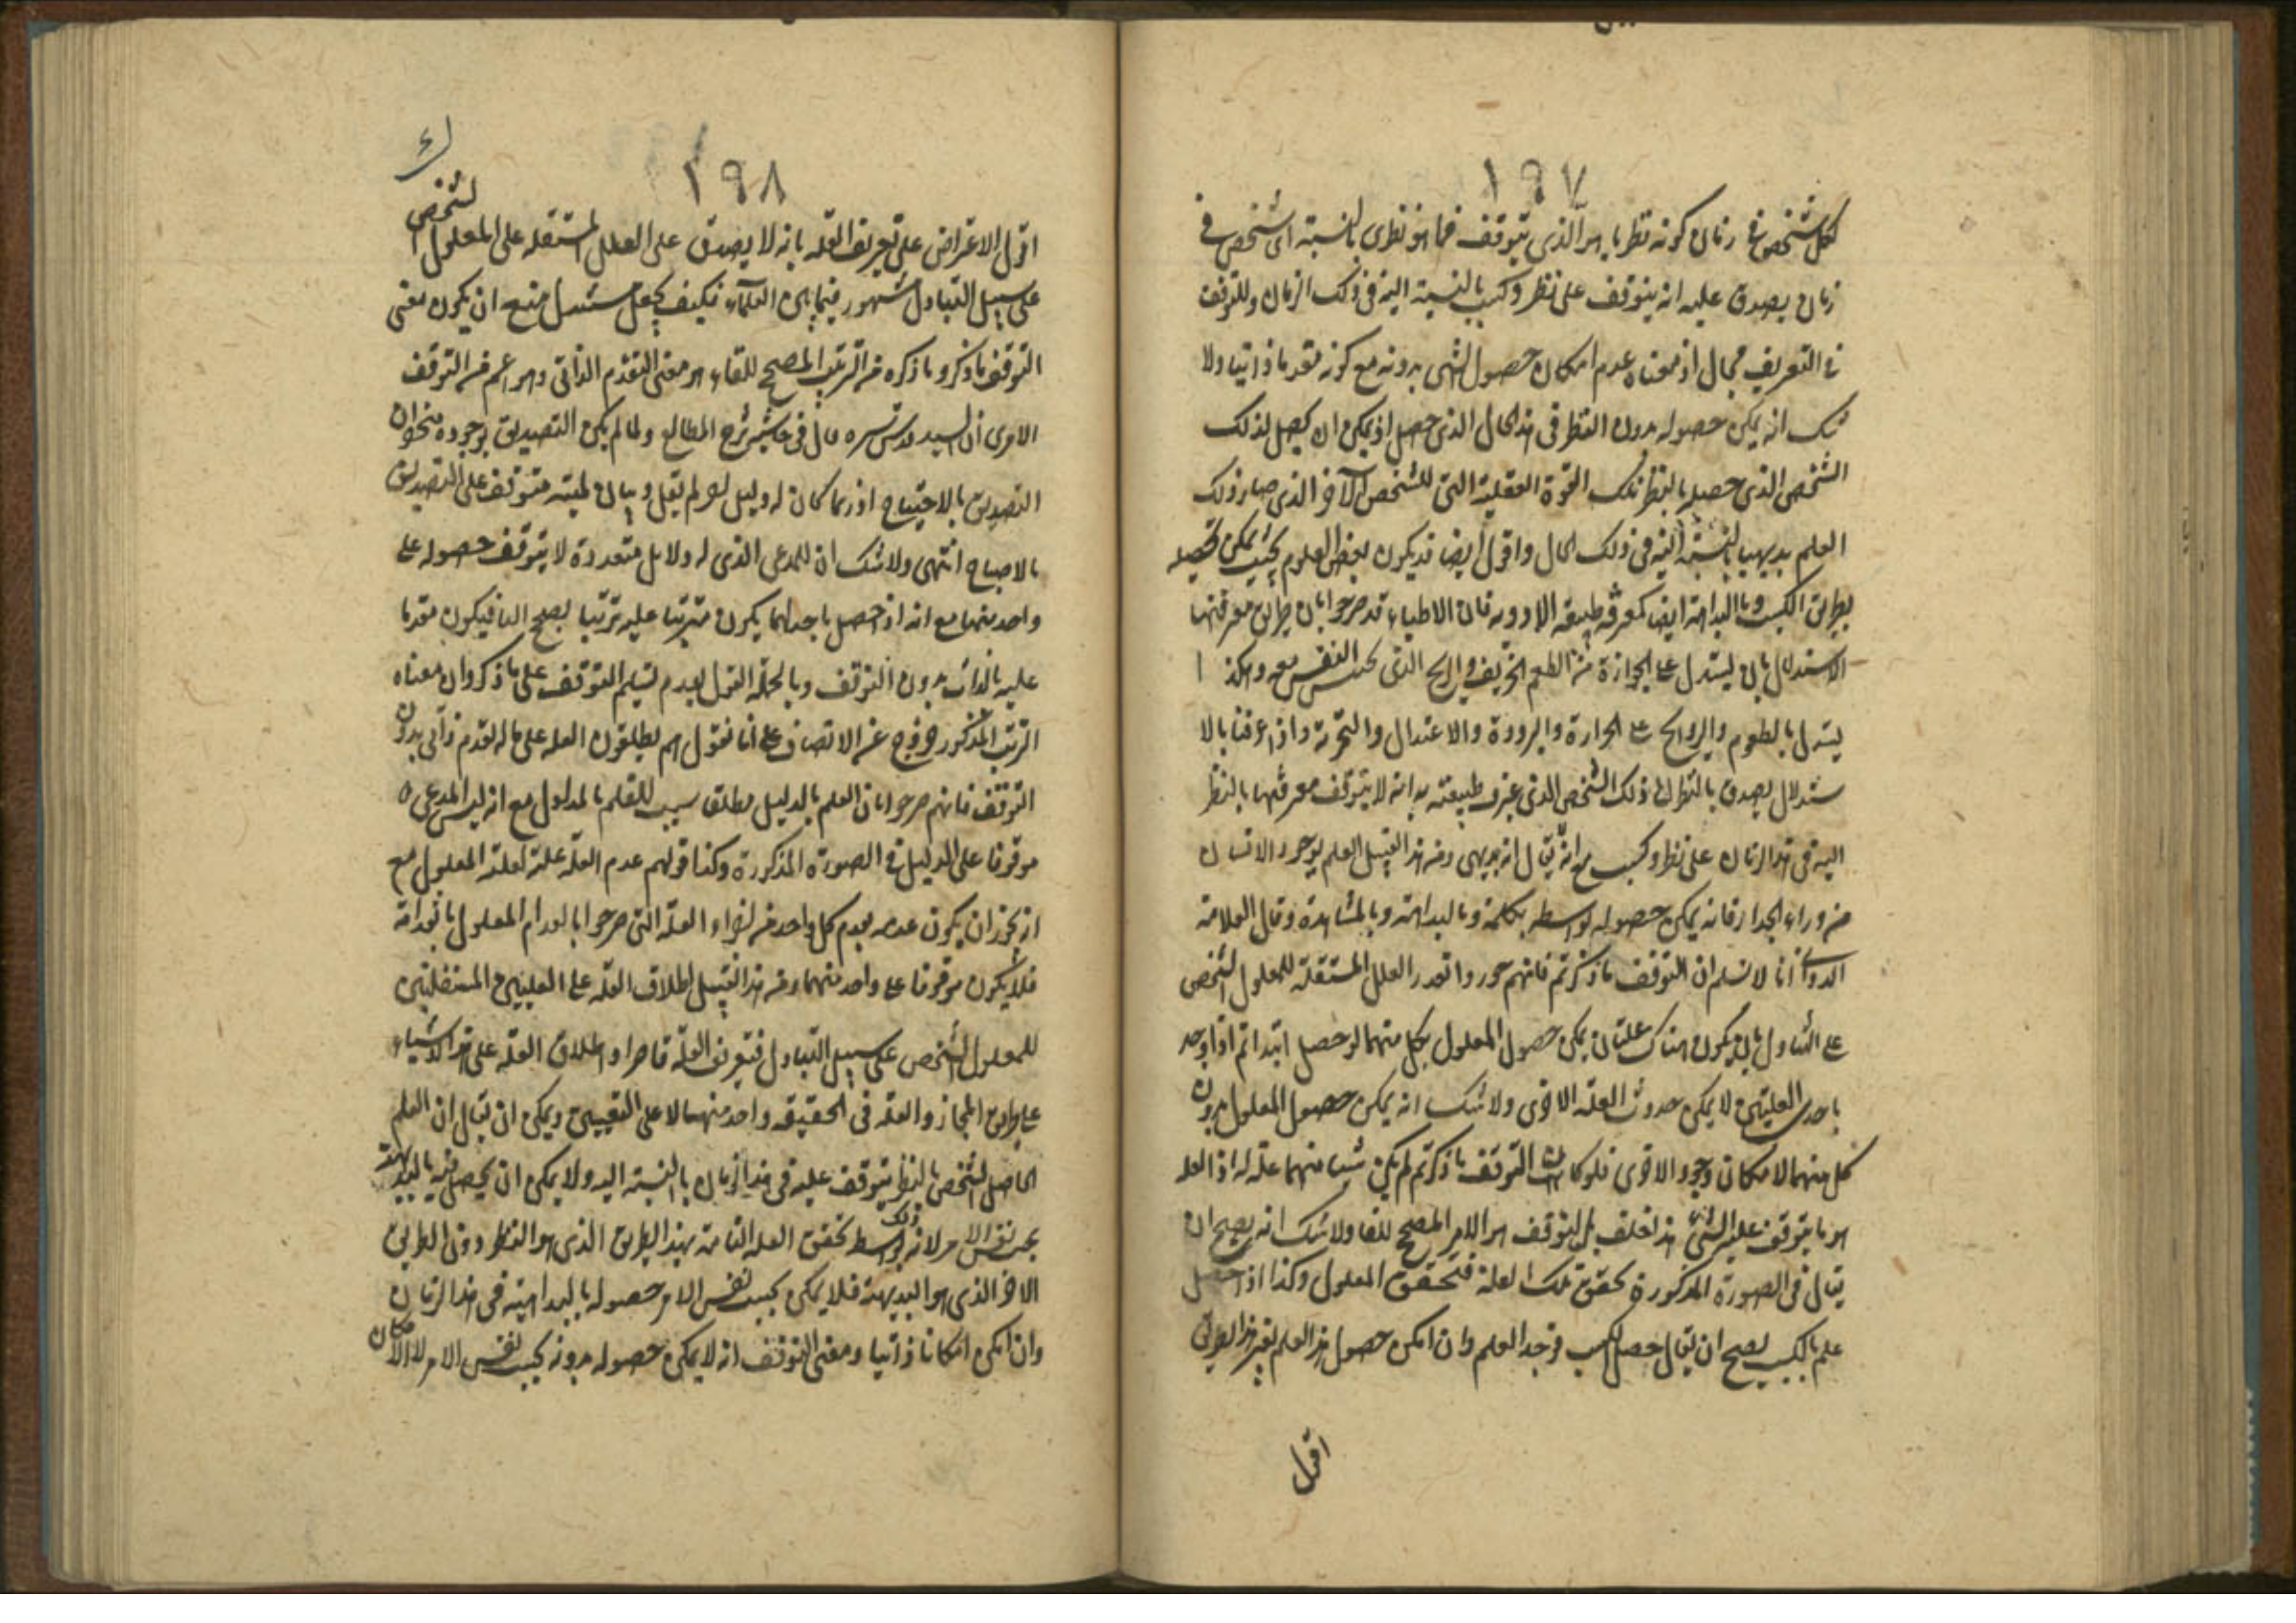 ١٩٧
لكل شخص في زمان كونه نظريا هو الذي يتوقف فما هو نظري بالنسبة اى شخص في
زمان يصدق عليه انه يتوقف على نظر وكسب بالنسبة اليه في ذلك الزمان وللتوقف
في التعريف مجال اذ معناه عدم امكان حصول الشي بدونه مع كونه متقدما ذاتيا ولا
شك انه يمكن حصوله بدون النظر في هذا الحال الذي حصل اذ يمكن ان يحصل لذلك
الشخص الذي حصله بالنظر تلك القوة العقلية التي للشخص الآخر الذي صار ذلك
العلم بديهيا بالنسبة اليه في ذلك الحال واقول ايضا قد يكون بعض العلوم بحيث يمكن تحصيله
بطريق الكسب وبالبداهة ايضا كمعرفة طبيعة الادوية فان الاطباء قد صرحوا بان طريق معرفتها
الاستدلال بان يستدل على الحرارة من الطعم الحريف والرايح الذي النفس معه وهكذا
يستدل بالطعوم والروايح على الحرارة والبرودة والاعتدال والتجربة واذا عرفنا بالا
ستدلال يصدق بالنظر الى ذلك الشخص الذي عرف طبيعته به انه لا يتوقف معرفتها بالنظر
اليه في هذا الزمان على نظر وكسب مع انه يقال انه بديهي ومن هذا القبيل العلم بوجود الانسان
من وراء الجدار فانه يمكن حصوله بواسطه تكلمه وبالبداهة وبالمشاهدة وقال العلامة
الدواني انا لا نسلم ان التوقف ما ذكرتم فانهم جوزوا تعدد العلل المستقلة للمعلول الشخصي
على التبادل بان يكون هناك علتان يمكن حصول المعلول بكل منهما لو حصل ابتداء ثم اذا وجد
باحدى العليتين لا يمكن حدوث العلة الاخرى ولا شك انه يمكن حصول المعلول بدون
كل منهما لامكان وجود الاخرى فلو كان التوقف ما ذكرتم لم يكن شيئا منهما علة له اذ العلة
هو ما يتوقف عليه الشئ هذا خلف بل التوقف هو الامر المصحح للفا ولا شك انه يصح ان
يقال في الصورة المذكورة تحقق تلك العلة فتحقق المعلول وكذا اذا حصل
علم بالكسب يصح ان يقال حصل الكسب فوجد العلم وان امكن حصول هذا العلم بغير هذا الطريق
اقول
١٩٨
اقول الاعتراض على تعريف العلة بانه لا يصدق على العلل المستقلة على المعلول الشخصي
على سبيل التبادل مشهور فيما بين العلماء فكيف يجعل سند المنع ان يكون معنى
التوقف ما ذكر وما ذكره من الترتيب المصحح للفاء هو معنى التقدم الذاتي وهو اعم من التوقف
الا يرى ان السيد قدس سره قال في حاشية شرح المطالع ولما لم يكن التصديق بوجوده من نحو ان
التصديق بالاحتياج اذ ربما كان له دليل لو لم يقل وبيان لميته متوقف على التصديق
بالاحتياج انتهى ولا شك ان للمدعى الذي له دلايل متعددة لا يتوقف حصوله على
واحد منها مع انه اذا حصل باحداهما يكون مترتبا عليه ترتبا يصحح الفا فيكون متقدما
عليه بالذات بدون التوقف وبالجملة القول بعدم تسليم التوقف على ما ذكر وان معناه
الترتب المذكور خروج عن الانصاف على انا نقول هم يطلقون العلة على ما له تقدم ذاتي بدون
التوقف فانهم صرحوا بان العلم بالدليل مطلقا سبب للعلم بالمدلول مع انه ليس المدعى
موقوفا على الدليل في الصورة المذكورة وكذا قولهم عدم العلة علة لعلة المعلول مع
انه يجوز ان يكون عدمه بعدم كل واحد من اجزاء العلة التي صرحوا بانعدام المعلول بانعدامه
فلا يكون موقوفا على واحد منهما ومن هذا القبيل اطلاق العلة على العليتين المستقلتين
للمعلول الشخصي على سبيل التبادل فتعريف العلة قاصر او اطلاق العلة على هذه الاشياء
على طريق المجاز والعلة في الحقيقة واحد منهما لا على التعيين ويمكن ان يقال ان العلم
الحاصل لشخص بالنظر يتوقف عليه في هذا الزمان بالنسبة اليه ولا يمكن ان يحصل فيه بالبديهة
بحسب نفس الامر لانه بواسطة ذلك تحقق العلة التامة بهذا الطريق الذي هو النظر دون الطريق
الاخر الذي هو البديهة فلا يمكن بحسب نفس الامر حصوله بالبداهية في هذا الزمان
وان امكن امكانا ذاتيا ومعنى التوقف انه لا يمكن حصوله بدونه بحسب نفس الامر لا الامكان